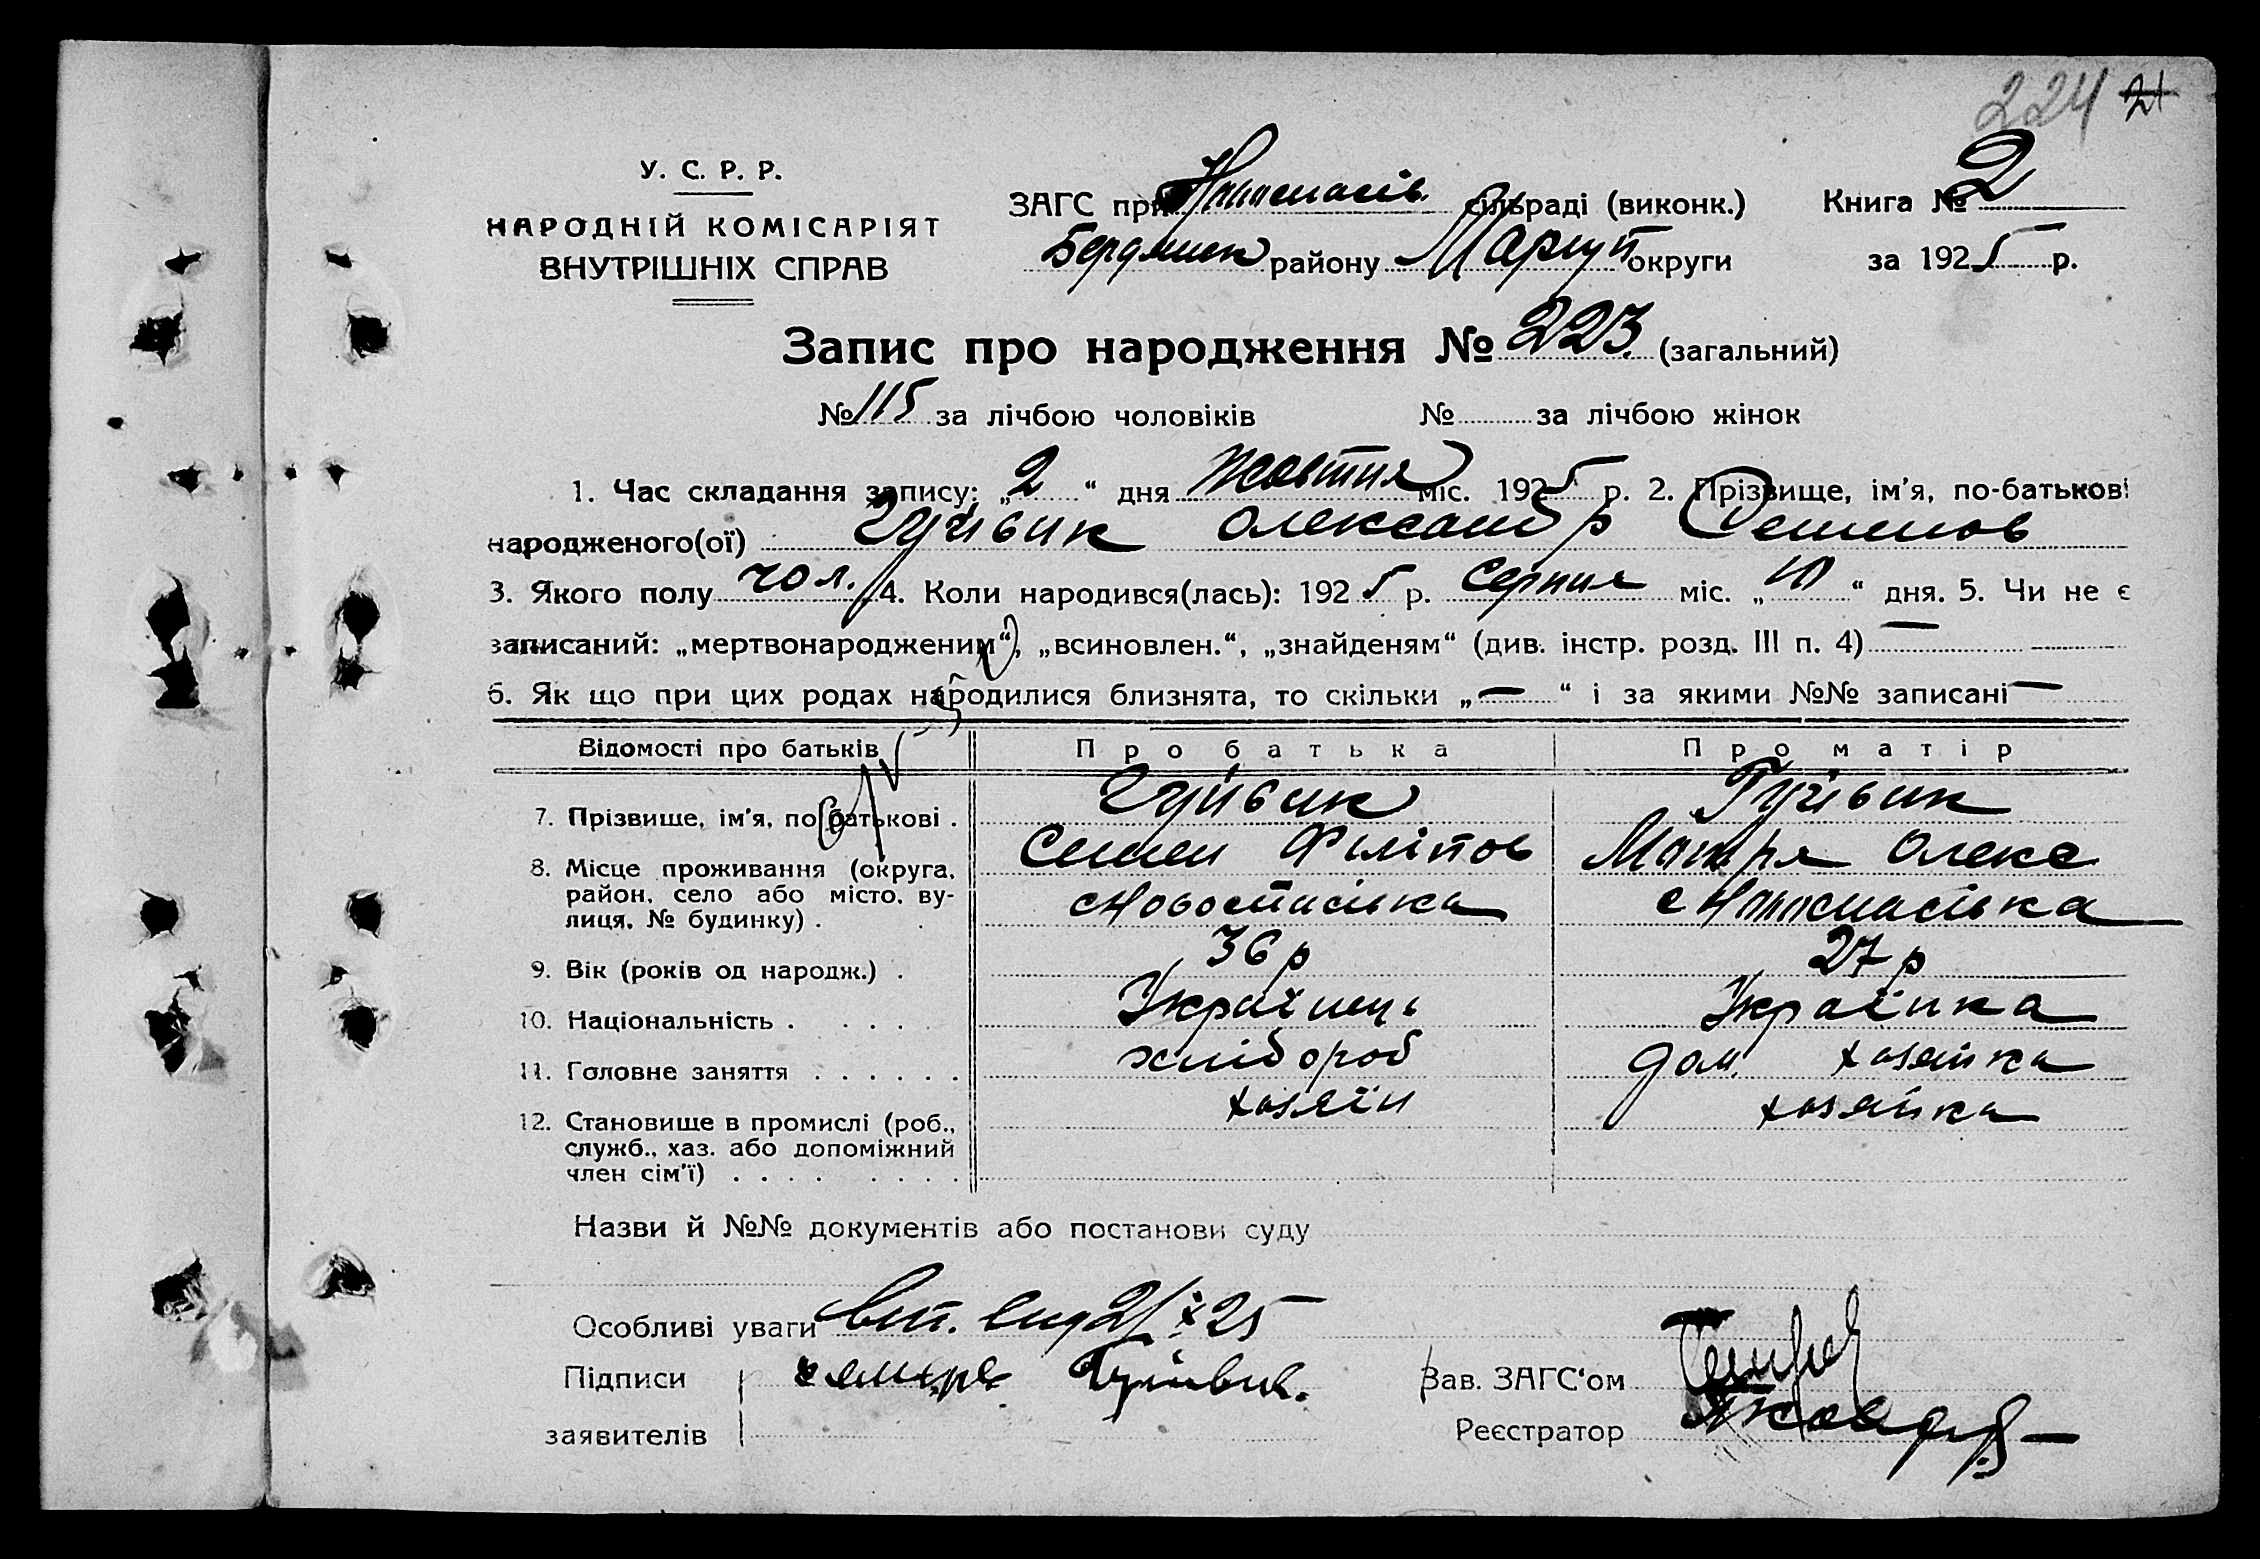 224 21
У. С. Р. Р.
НАРОДНІЙ КОМІСАРІЯТ
ВНУТРІШНІХ СПРАВ
ЗАГС при Новоспасів. сільраді (виконк.) Книга № 2
Бердянськ району Маріуп округи за 1925 р.
Запис про народження № 223 (загальний)
№ 115 за лічбою чоловіків № за лічбою жінок
1. Час складання запису: „2“ дня Жовтня міс. 1925 р. 2. Прізвище, ім'я, по-батькові
народженого(ої) Гуйвик Олександр Семенов
3. Якого полу чол. 4. Коли народився(лась): 1925 р. Серпня міс. „10“ дня. 5. Чи не є
записаний: „мертвонародженим“, „всиновлен.“, „знайденям“ (див. інстр. розд. III п. 4) —
6. Як що при цих родах народилися близнята, то скільки „—“ і за якими №№ записані —
Відомості про батьків Про батька Про матір
7. Прізвище, ім'я, по батькові . Гуйвик Гуйвик
Семен Філіпов Мотря Олекс
8. Місце проживання (округа, район, село або місто, вулиця, № будинку) . с Новоспасівка с Новоспасівка
9. Вік (років од народж.) . 36 р 27 р
10. Національність . . . . . Українець Українка
11. Головне заняття . . . . . . хлібороб дом. хозяйка
12. Становище в промислі (роб., служб., хаз. або допоміжний член сім'ї) . . . . . . . . хозяїн хозяйка
Назви й №№ документів або постанови суду
Особливі уваги 2/X 25
Підписи Гуйвик.
заявителів
Зав. ЗАГС‘ом
Реєстратор